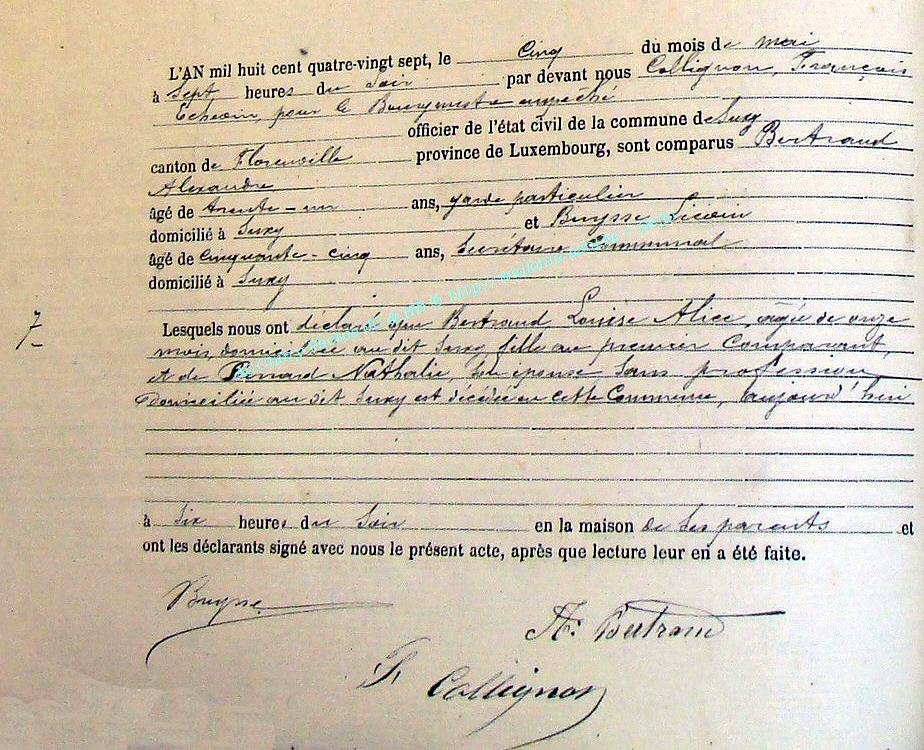 L'AN mil huit cent quatre-vingt sept, le Cinq du mois de mai
à Sept heures du Soir par devant nous Collignon, François
Echevin, pour le Bourgmestre empêché
officier de l'état civil de la commune de Suxy
canton de Florenville province de Luxembourg, sont comparus Bertrand
Alexandre
âgé de trente-un ans, garde particulier
domicilié à Suxy et Buysse
âgé de Cinquante-cinq ans, Secrétaire Communal
domicilié à Suxy
7
Lesquels nous ont déclaré que Bertrand, Louise Alice, agée de onze
mois, domiciliée au dit Suxy, fille au premier Comparant,
et de Nathalie, son epouse Sans profession,
domiciliée au dit Suxy est décédée en cette Commune, aujourd'hui
à Six heures du Soir en la maison de Ses parents et
ont les déclarants signé avec nous le présent acte, après que lecture leur en a été faite.
Buysse
At: Bertrand
F Collignon